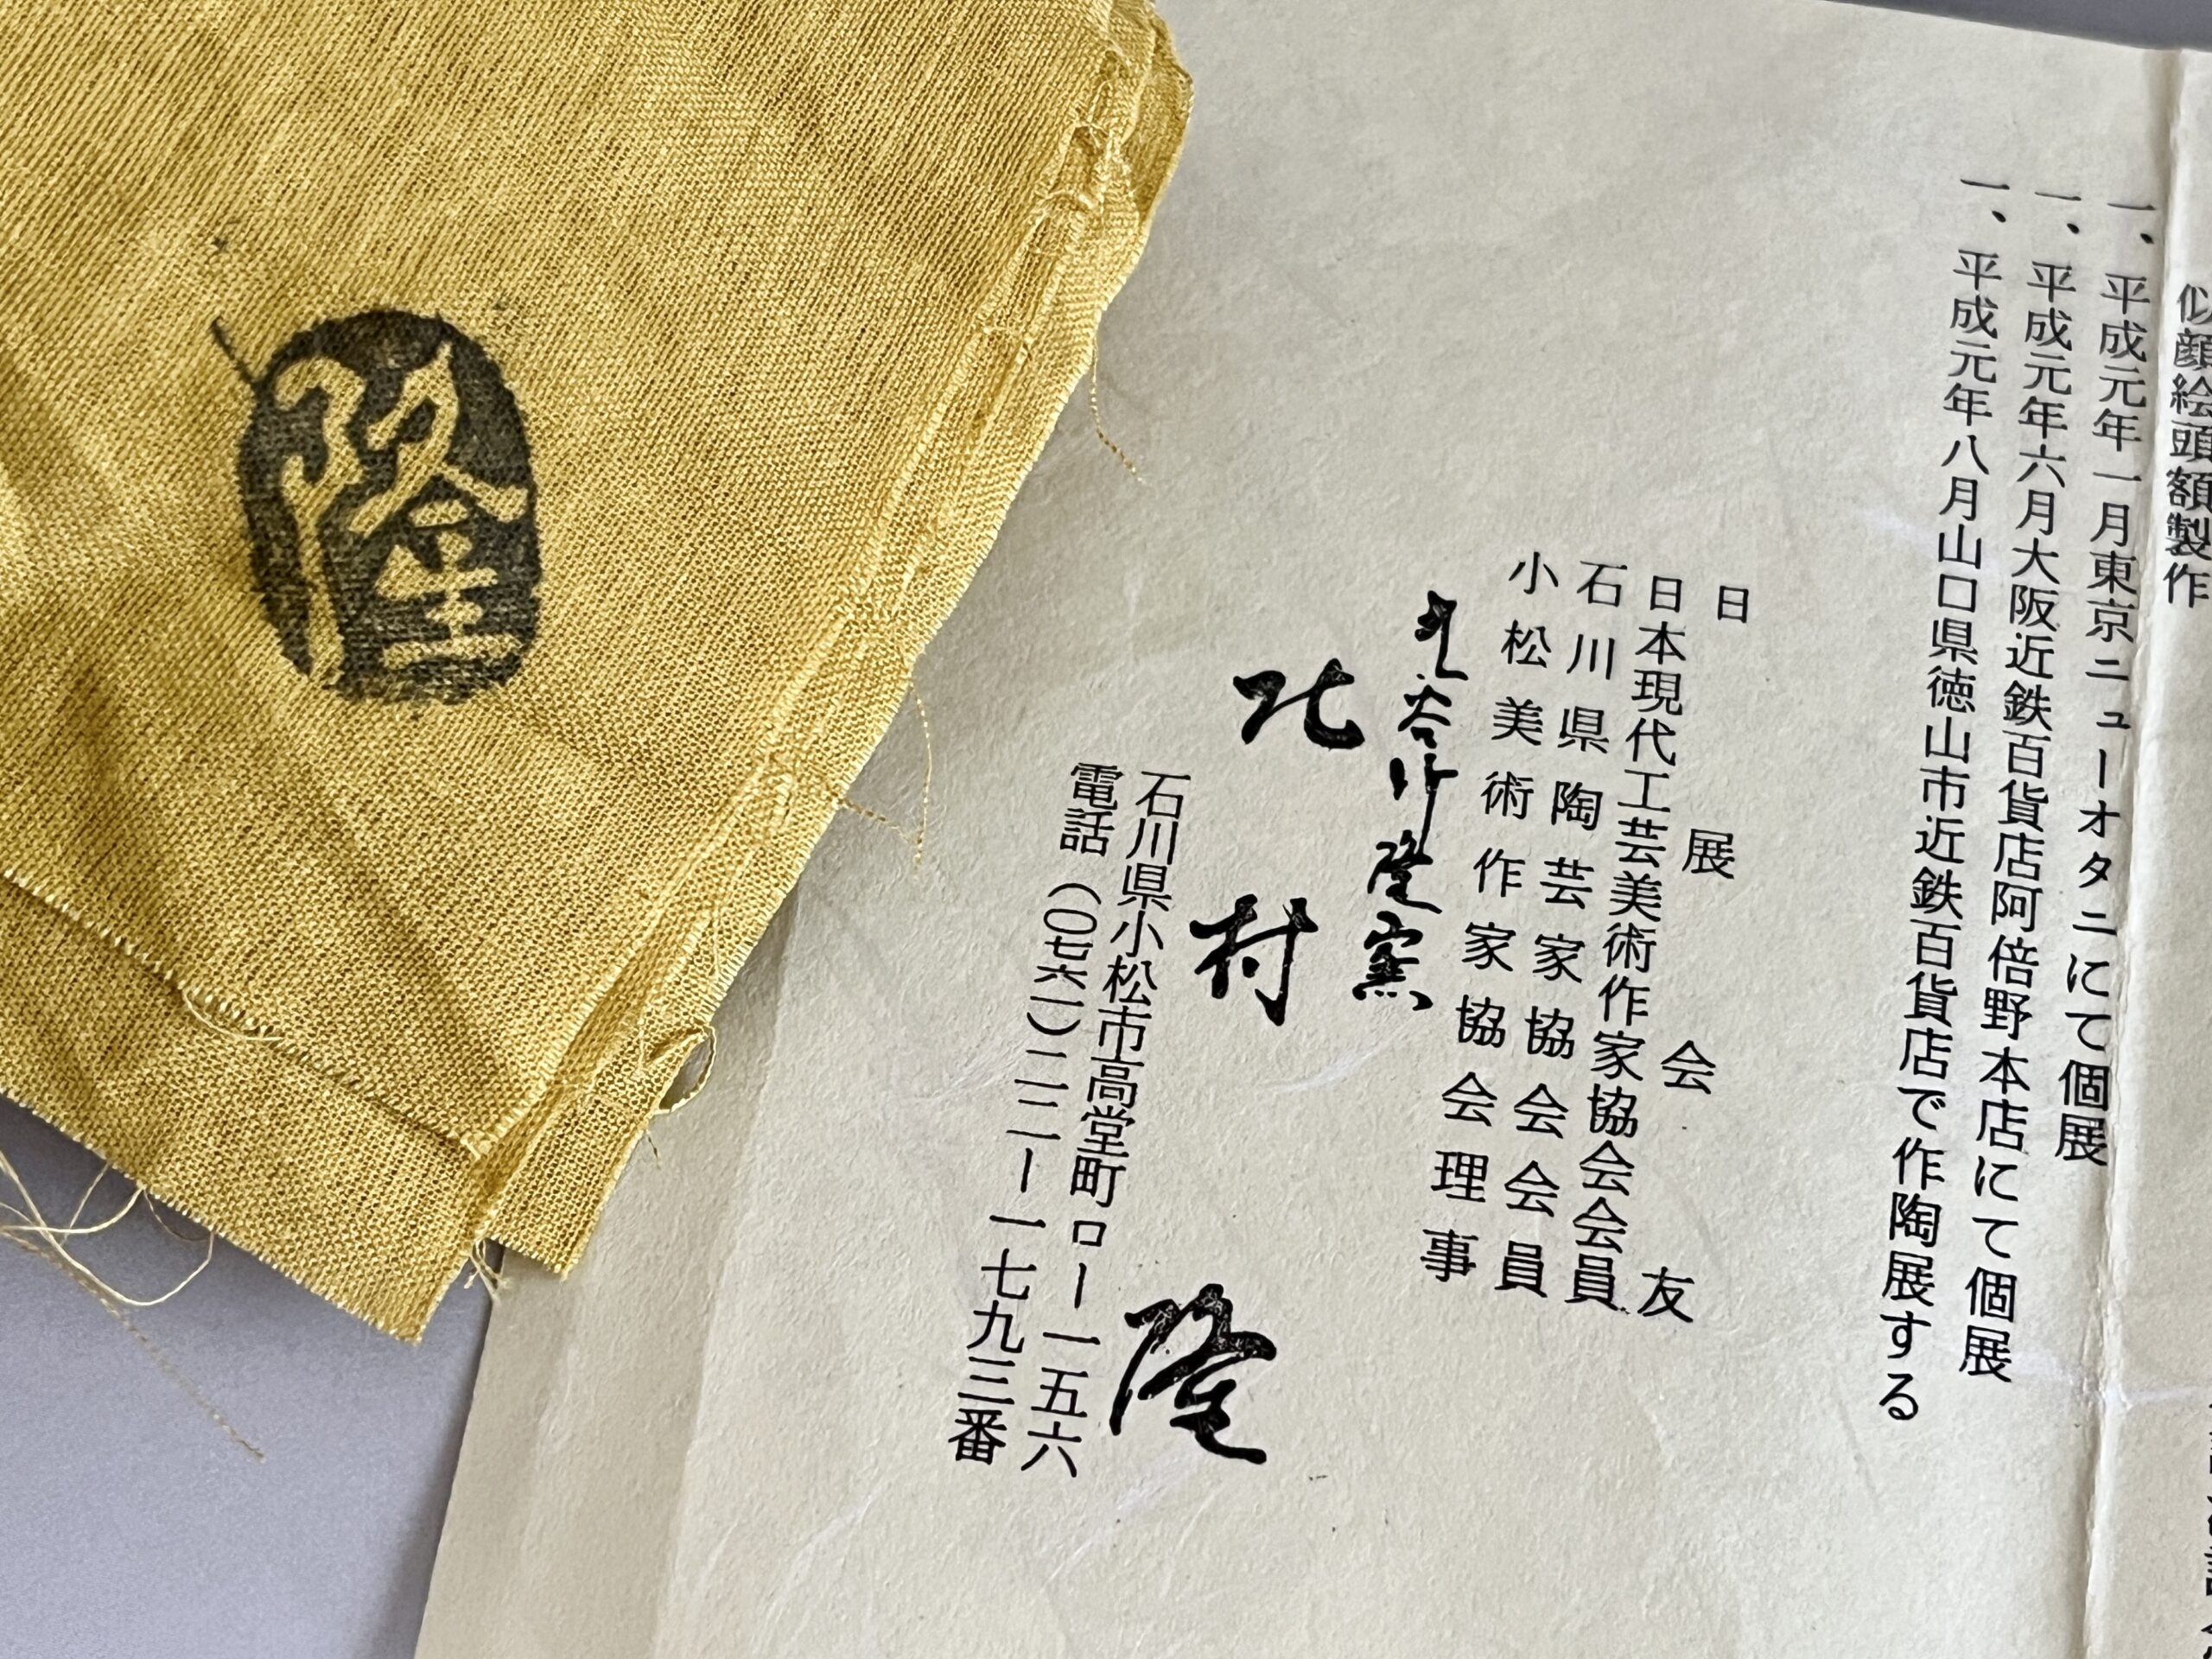 似顔絵頭額製作
一、平成元年一月東京ニューオタニにて個展
一、平成元年六月大阪近鉄百貨店阿倍野本店にて個展
一、平成元年八月山口県徳山市近鉄百貨店で作陶展する
日展会友
日本現代工芸美術作家協会会員
石川県陶芸家協会会員
小松美術作家協会理事
九谷竹隆窯
北村隆
石川県小松市高堂町ロー一五六
電話(〇七六一)二二ー一七九三番
隆